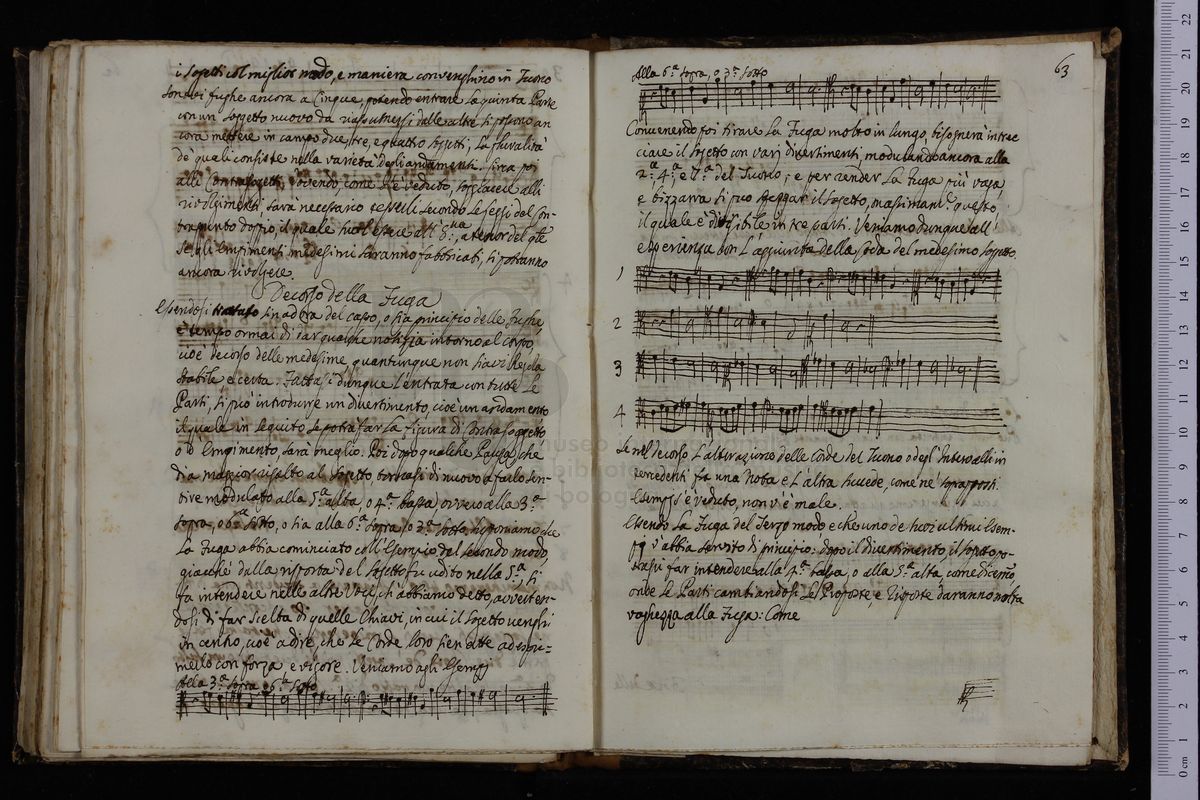 i Sogetti col miglior modo, e maniera convenghino in Tuono
sonovi fughe ancora a Cinque, potendo entrare la quinta Parte
con un' Soggetto nuovo da riassumersi dalle altre si possono an
cora mettere in campo due, tre, e quattro Sogetti, la pluralità
de quali consiste nella varietà degli andamenti. Circa poi
alli Contrasogetti, dovendo, come s'è veduto, soggiacere alli
rivolgimenti, sarà necessario tesserli secondo le leggi del Con-
trapunto doppio, il quale suol essere all' 8.va, a tenor del qle
se gli Empimenti medesimi saranno fabbricati, si potranno
ancora rivolgere.
Decorso della Fuga
Essendosi trattato sin adora del capo, o sia principio delle Fughe
è tempo ormai di dar qualche notizia intorno al corpo
cioè decorso delle medesime quantunque non siavi Regola
stabile e certa. Fattasi dunque l'entrata con tutte le
Parti, si può introdurre un divertimento, cioè un andamento
il quale in seguito se potrà far la figura di Contrasoggetto
o d' Empimento, sarà meglio. Poi dopo qualche Pausa, che
dia maggior risalto al Sogetto, tornasi di nuovo a farlo sen-
tire modulato alla 5.a alta, o 4.a bassa, ovvero alla 3.a
sopra, o 6.a sotto, o sia alla 6.a sopra, o 3.a sotto, supponiamo che
la Fuga abbia cominciato coll' Esempio del secondo modo,
giacché dalla risposta del Sogetto fu udito nella 5.a, si
fa intendere nelle altre voci, ch'abbiamo detto, avverten-
dosi di far scelta di quelle Chiavi, in cui il Sogetto venghi
in centro, cioè a dire, che le Corde loro sien atte ad espri-
merlo con forza e vigore. Veniamo agli Esempj
Alla 3.a sopra, o 6.a sotto
63
Alla 6.a sopra, o 3.a sotto
Convenendo poi tirare la Fuga molto in lungo, bisognerà intrec
ciare il Sogetto con varj divertimenti, modulando ancora alla
2.a, 4.a, e 7.a del Tuono; e per render la Fuga più vaga,
e bizzarra si può spezzar il Sogetto, massimam.e questo,
il quale è divisibile in tre parti. Veniamo dunque all'
esperienza con l'aggiunta della coda del medesimo Sogetto.
1
2
3
4
Se nel decorso l'alterazione delle Corde del Tuono, o degl' Intervalli in
cendenti fa una Nota e l'altra succede, come ne' soprapposti
Esempj s'è veduto, non v'è male.
Essendo la Fuga del Terzo modo, e che uno de suoi ultimi Esem-
pj v'abbia servito di principio: dopo il divertimento, il Sogetto po-
trassi far intendere alla 4.a bassa, o alla 5.a alta, come dicemo,
onde le Parti cambiandosi le Proposte, e Risposte daranno molta
vaghezza alla Fuga: Come